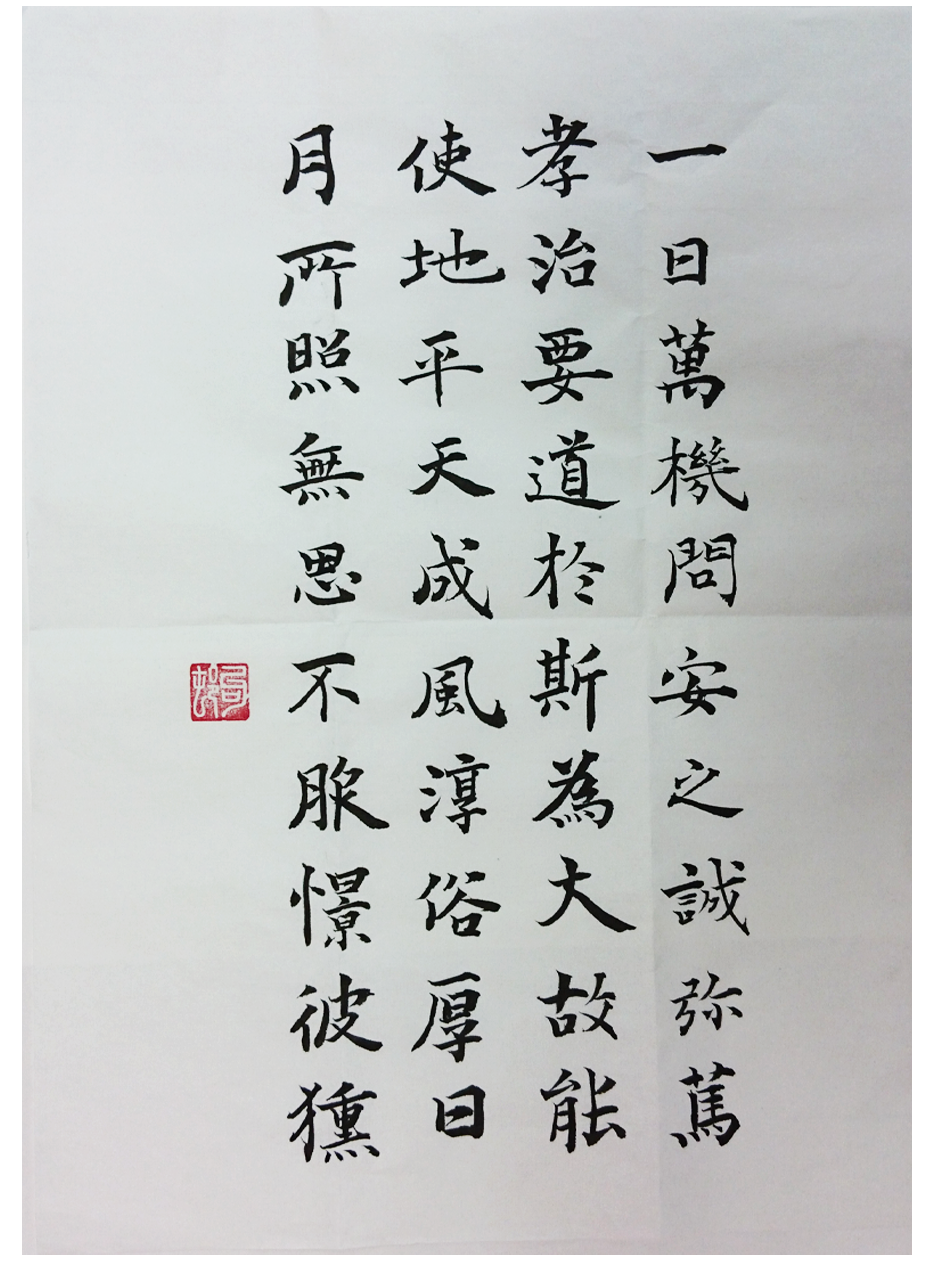 一日萬機問安之誠弥篤
孝治要道於斯為大故能
使地平天成風淳俗厚日
月所照無思不服憬彼獯